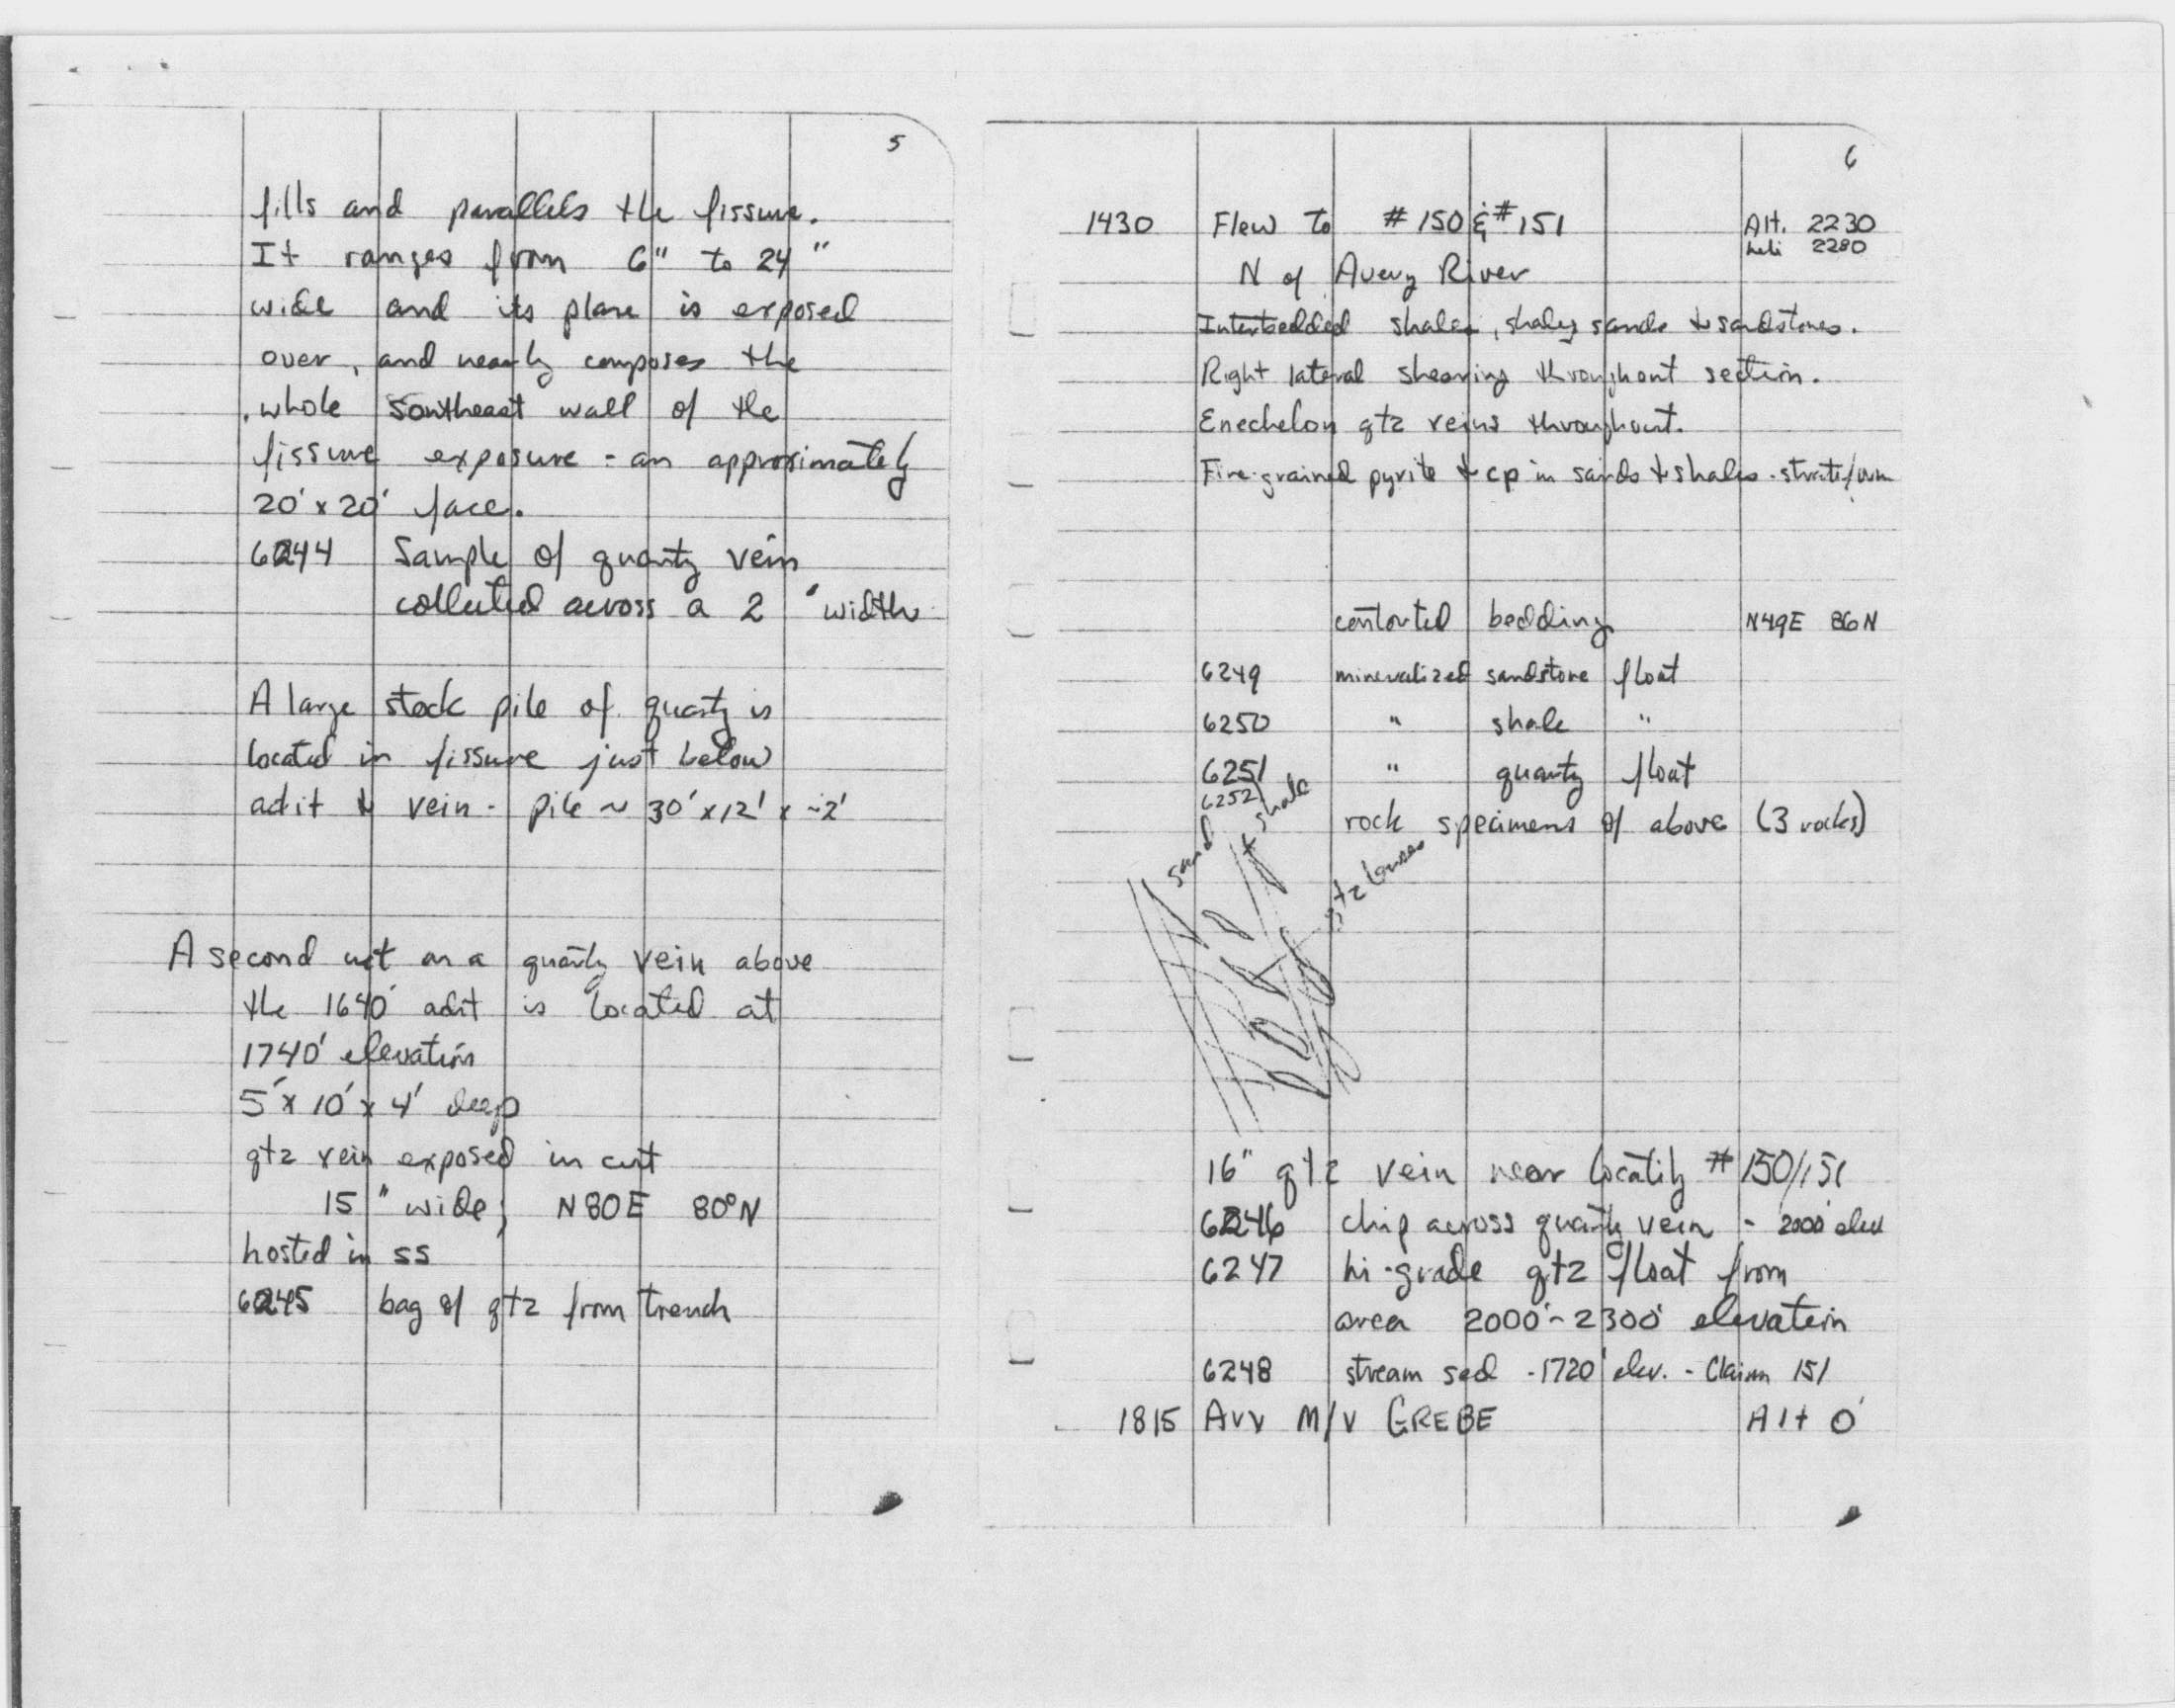 5
fills and parallels the fissure.
It ranges from 6" to 24"
wide and its plane is exposed
over, and nearly composes the
whole southeast wall of the
fissure exposure - an approximately
20' x 20' face.
6244 Sample of quartz vein
collected across a 2 ' width
A large stock pile of quartz is
located in fissure just below
adit & vein - pile ~ 30' x 12' x ~2'
A second cut on a quartz vein above
the 1640' adit is located at
1740' elevation
5' x 10' x 4' deep
qtz vein exposed in cut
15 " wide; N80E 80°N
hosted in ss
6245 bag of qtz from trench
6
1430 Flew to #150 & #151 Alt. 2230
heli 2280
N of Avery River
Interbedded shales, shaley sands & sandstones.
Right lateral shearing throughout section.
Enechelon qtz veins throughout.
Fine-grained pyrite & cp in sands & shales - stratiform
contorted bedding N49E 86N
6249 mineralized sandstone float
6250 " shale "
6251 " quartz float
6252 rock specimens of above (3 rocks)
sand & shale
qtz lenses
16" qtz vein near locality #150/151
6246 chip across quartz vein - 2000' elev
6247 hi-grade qtz float from
area 2000' - 2300' elevation
6248 stream sed - 1720' elev. - Claim 151
1815 Arv M/V GREBE Alt 0'